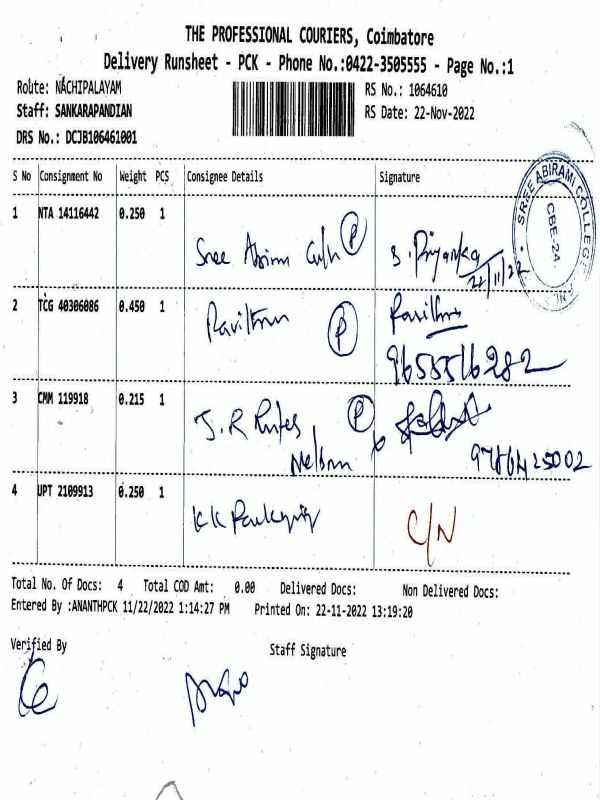 THE PROFESSIONAL COURIERS, Coimbatore
Delivery Runsheet - PCK - Phone No.:0422-3505555 - Page No.:1
Route: NACHIPALAYAM
RS No.: 1064610
Staff: SANKARAPANDIAN
RS Date: 22-Nov-2022
DRS No.: DCJB106461001
S No Consignment No Weight PCS Consignee Details Signature
SREE ABIRAMI COLLEGE
CBE-24.
1 NTA 14116442 0.250 1
Sree P S. Priyanka
22/11/22
2 TCG 40306086 0.450 1
Pavithra P Pavithra
9655516282
3 CMM 119918 0.215 1
J.R P
4 UPT 2109913 0.250 1
KK C/N
Total No. Of Docs: 4 Total COD Amt: 0.00 Delivered Docs: Non Delivered Docs:
Entered By :ANANTHPCK 11/22/2022 1:14:27 PM Printed On: 22-11-2022 13:19:20
Verified By
Staff Signature